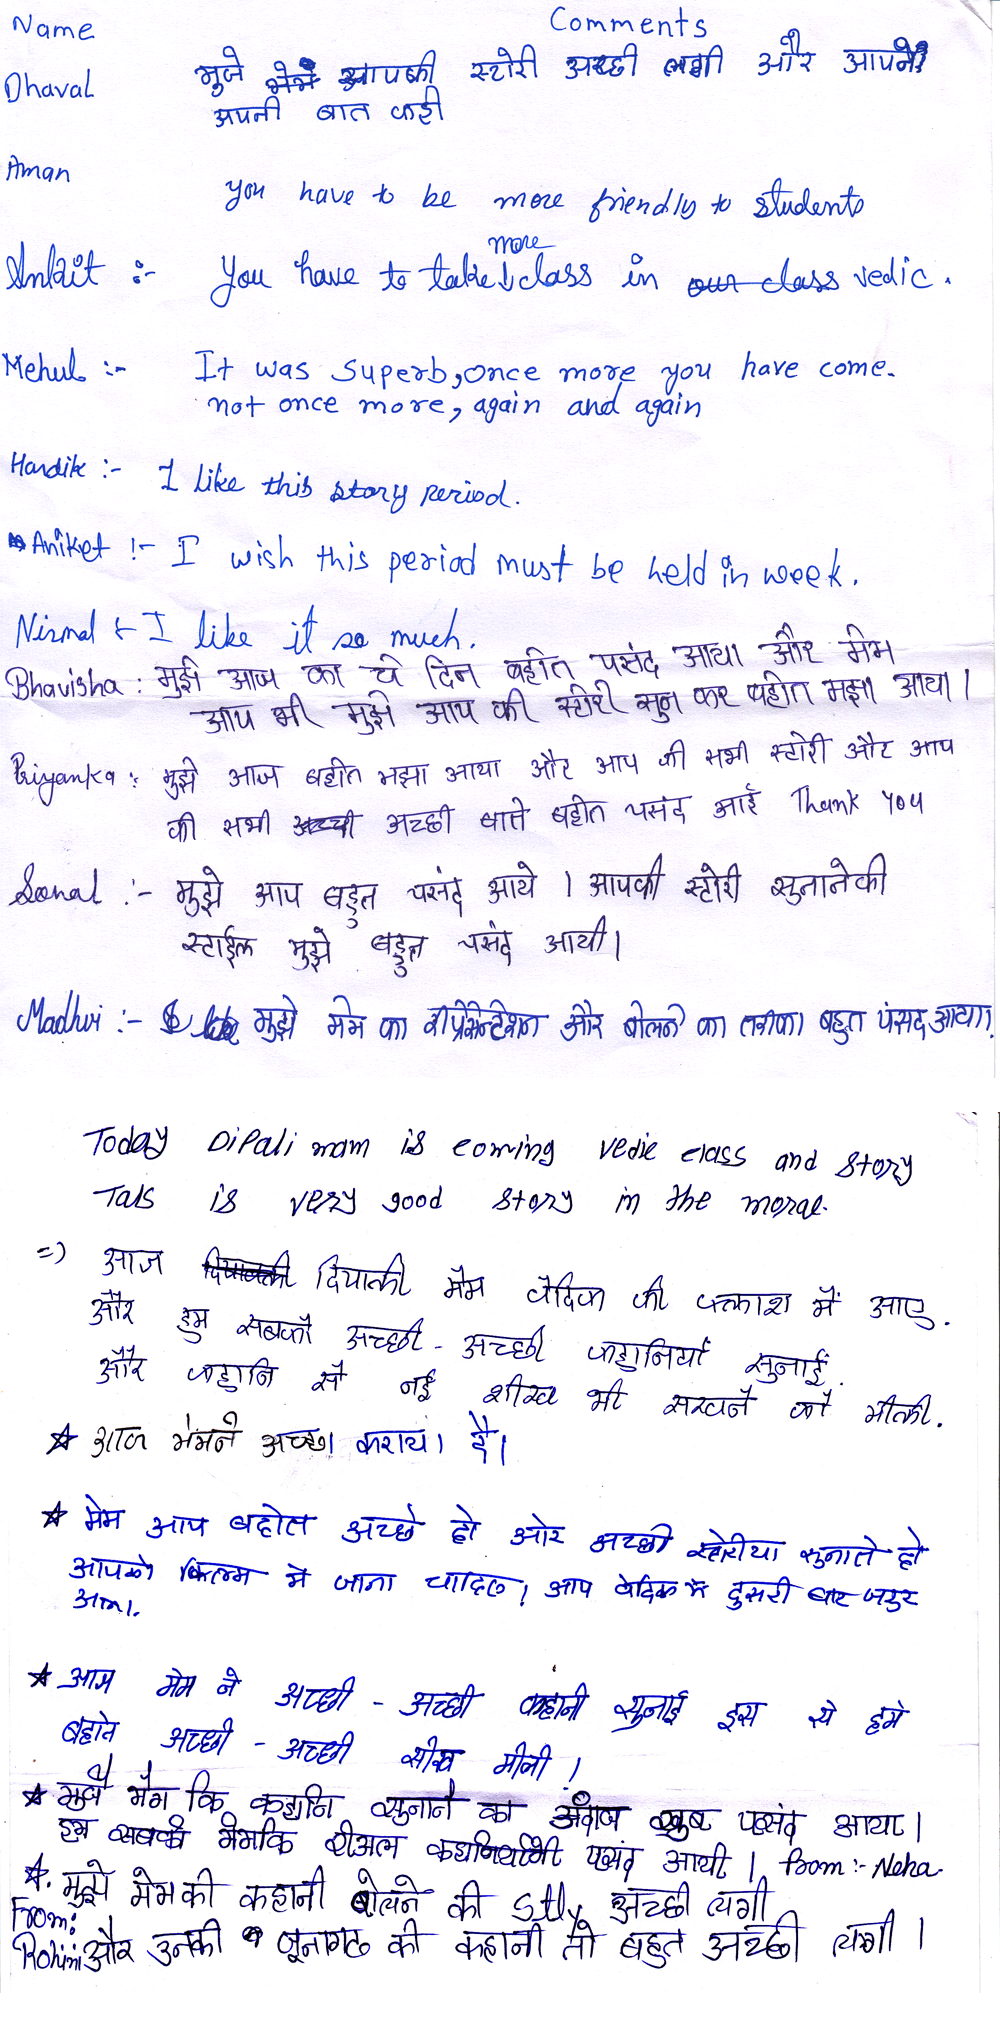 Name Comments
Dhaval मुजे आपकी स्टोरी अच्छी लगी और आपने
अपनी बात कही
Aman
you have to be more friendly to students
more
Ankit :- You have to take class in our class vedic.
Mehul :- It was superb, once more you have come.
not once more, again and again
Hardik :- I like this story period.
Aniket :- I wish this period must be held in week.
Nirmal :- I like it so much.
Bhavisha : मुझे आज का ये दिन बहोत पसंद आया और मेम
आप भी मुझे आप की स्टोरी सुन कर बहोत मझा आया।
Priyanka : मुझे आज बहोत मझा आया और आप की सभी स्टोरी और आप
की सभी अच्ची अच्छी बाते बहोत पसंद आई Thank You
Sonal :- मुझे आप बहुत पसंद आये । आपकी स्टोरी सुनानेकी
स्टाईल मुझे बहुत पसंद आयी।
Madhvi :- मुझे मेम का और बोलने का तरीका बहुत पंसद आया।
Today Dipali mam is coming vedic class and story
Tals is very good story in the moral.
=) आज दिपाली मैम वेदिक की क्लाश में आए.
और हम सबको अच्छी - अच्छी कहानियाँ सुनाई.
और कहानि से नई शीख भी सखने को मीली.
★ आज मेमने अच्छा कराया है।
★ मेम आप बहोत अच्छे हो ओर अच्छी स्टोरीया सुनाते हो
आपको फिल्म मे जाना चाहिए। आप वेदिक मे दुसरी बार जरुर
आना.
★ आज मेम ने अच्छी - अच्छी कहानी सुनाई इस से हमे
बहोत अच्छी - अच्छी सीख मीली।
★ मुझे मेम कि कहानि सुनाने का अंदाज खुब पसंद आया।
हम सबको मेमकि रीअल पसंद आयी। From :- Neha
★. मुझे मेम की कहानी बोलने की Stly अच्छी लगी
From:
Rohini और उनकी जूनागढ की कहानी तो बहुत अच्छी लगी।